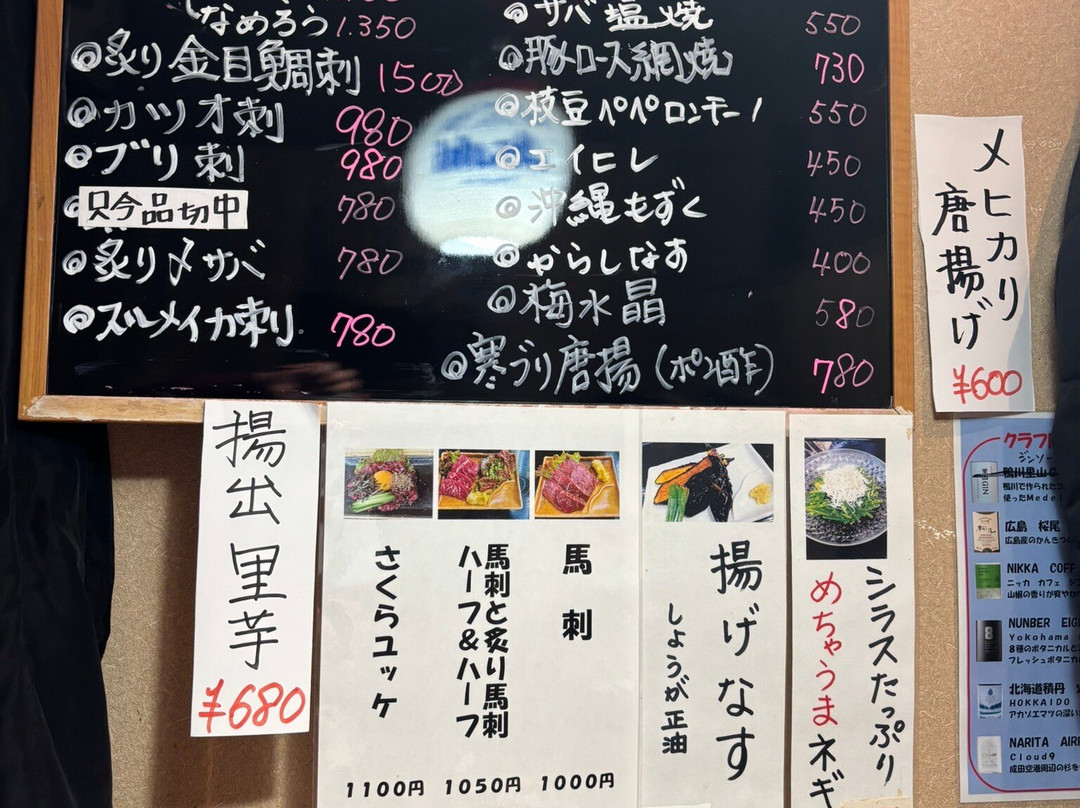 なめろう 1.350
◎炙り金目鯛刺 1500
◎カツオ刺 980
◎ブリ刺 980
只今品切中 780
◎炙り〆サバ 780
◎スルメイカ刺り 780
◎サバ塩焼 550
◎豚トロース網焼 730
◎枝豆ペペロンチーノ 550
◎エイヒレ 450
◎沖縄もずく 450
◎からしなす 400
◎梅水晶 580
◎寒ブリ唐揚(ポン酢) 780
メヒカリ
唐揚げ
¥600
揚出里芋
¥680
馬刺
1000円
馬刺と炙り馬刺
ハーフ&ハーフ
1050円
さくらユッケ
1100円
揚げなす
しょうが正油
シラスたっぷり
めちゃうまネギ
クラフ
ジンソー
鴨川里山G
鴨川で作られたコ
使ったMedei
広島 桜尾
広島産のかんきつ
NIKKA COFF
ニッカ カフェ ジ
山椒の香りが爽やか
NUNBER EIG
Yokohama
8種のボタニカルと
フレッシュボタニカ
北海道積丹
HOKKAIDO
アカゾエマツの深い
NARITA AIR
Cloud9
成田空港周辺の杉を